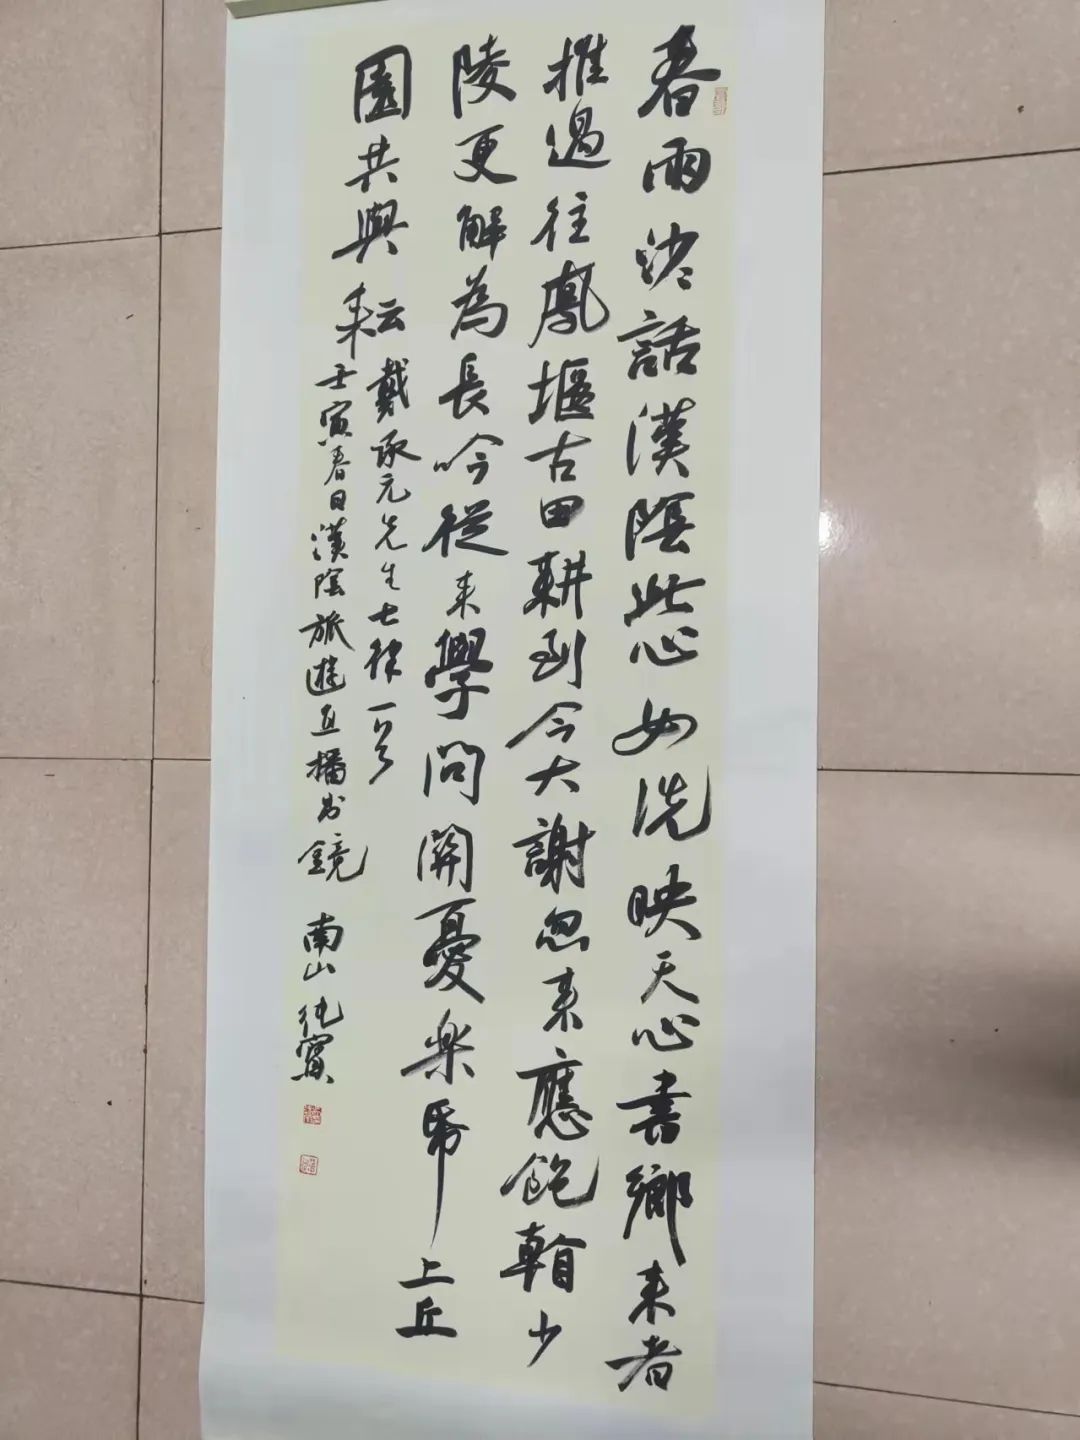 春雨沙話漢陰此心如洗映天心書鄉来者
推過往鳳堰古田耕到今大謝忽来應飽
少
陵更解為長吟從来學問開憂樂
上丘
園共與耒云戴承元先生七律一首
壬寅春日漢陰旅遊直播出鏡 南山